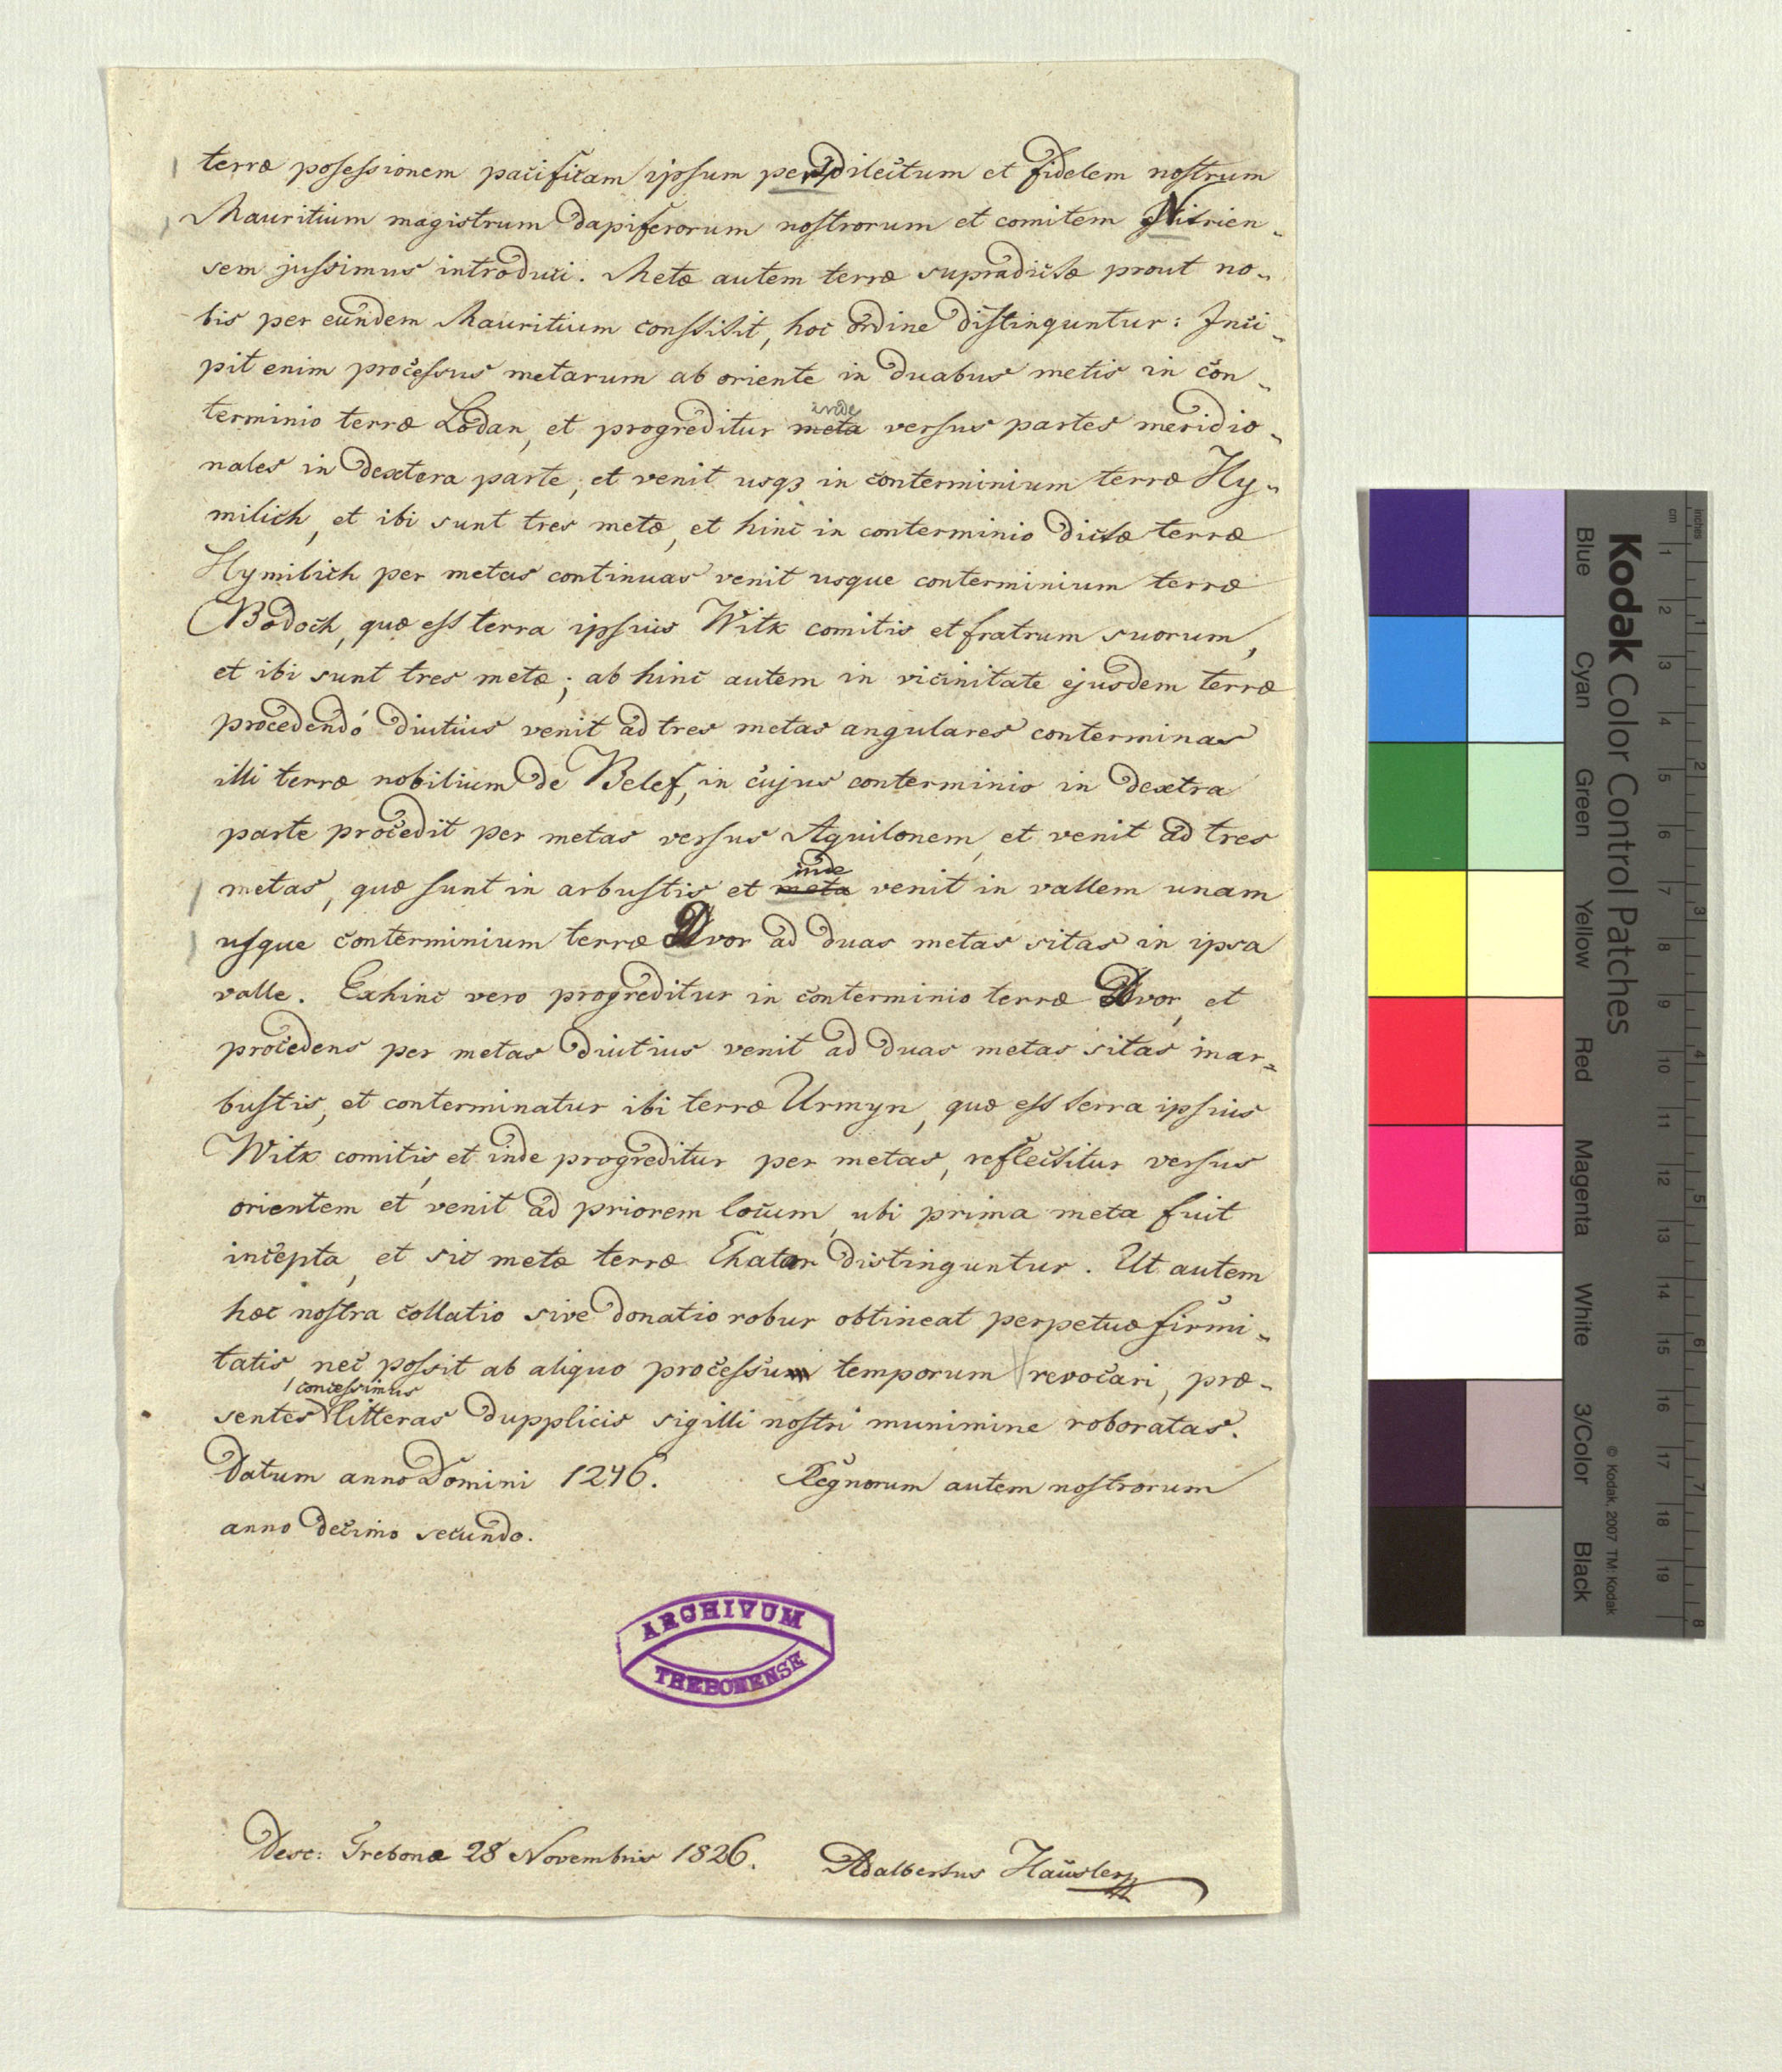 terræ possessionem pacificam ipsum per dilectum et fidelem nostrum
Mauritium magistrum dapiferorum nostrorum et comitem Nitrien-
sem jussimus introduci. Metæ autem terræ supradictæ prout no-
bis per eundem Mauritium constitit, hoc ordine distinguntur: Inci-
pit enim processus metarum ab oriente in duabus metis in con-
inde
terminio terræ Lodan, et progreditur meta versus partes meridio-
nales in dextera parte, et venit usqꝫ in conterminium terræ Hy-
milich, et ibi sunt tres metæ, et hinc in conterminio dictæ terræ
Hymilich per metas continuas venit usque conterminium terræ
Bodoch, quæ est terra ipsius Witk comitis et fratrum suorum,
et ibi sunt tres metæ; ab hinc autem in vicinitate ejusdem terræ
procedendo diutius venit ad tres metas angulares conterminas
illi terræ nobilium de Belef, in cujus conterminio in dextra
parte procedit per metas versus Aquilonem, et venit ad tres
inde
metas, quæ sunt in arbustis et meta venit in vallem unam
usque conterminium terræ Dvor ad duas metas sitas in ipsa
valle. Exhinc vero progreditur in conterminio terræ Dvor, et
procedens per metas diutius venit ad duas metas sitas in ar-
bustis, et conterminatur ibi terræ Urmyn, quæ est terra ipsius
Witk comitis, et inde progreditur per metas, reflectitur versus
orientem et venit ad priorem locum, ubi prima meta fuit
incepta, et sic metæ terræ Chatar distinguntur. Ut autem
hæc nostra collatio sive donatio robur obtineat perpetuæ firmi-
tatis nec possit ab aliquo processu temporum revocari, præ-
concessimus
sentes litteras dupplicis sigilli nostri munimine roboratas.
Datum anno Domini 1246. Regnorum autem nostrorum
anno decimo secundo.
ARCHIVUM
TREBONENSE
Desc: Trebonæ 28 Novembris 1826. Adalbertus Häusler
Kodak Color Control Patches
© Kodak, 2007 TM: Kodak
Blue Cyan Green Yellow Red Magenta White 3/Color Black
cm 1 2 3 4 5 6 7 8 9 10 11 12 13 14 15 16 17 18 19
inches 1 2 3 4 5 6 7 8